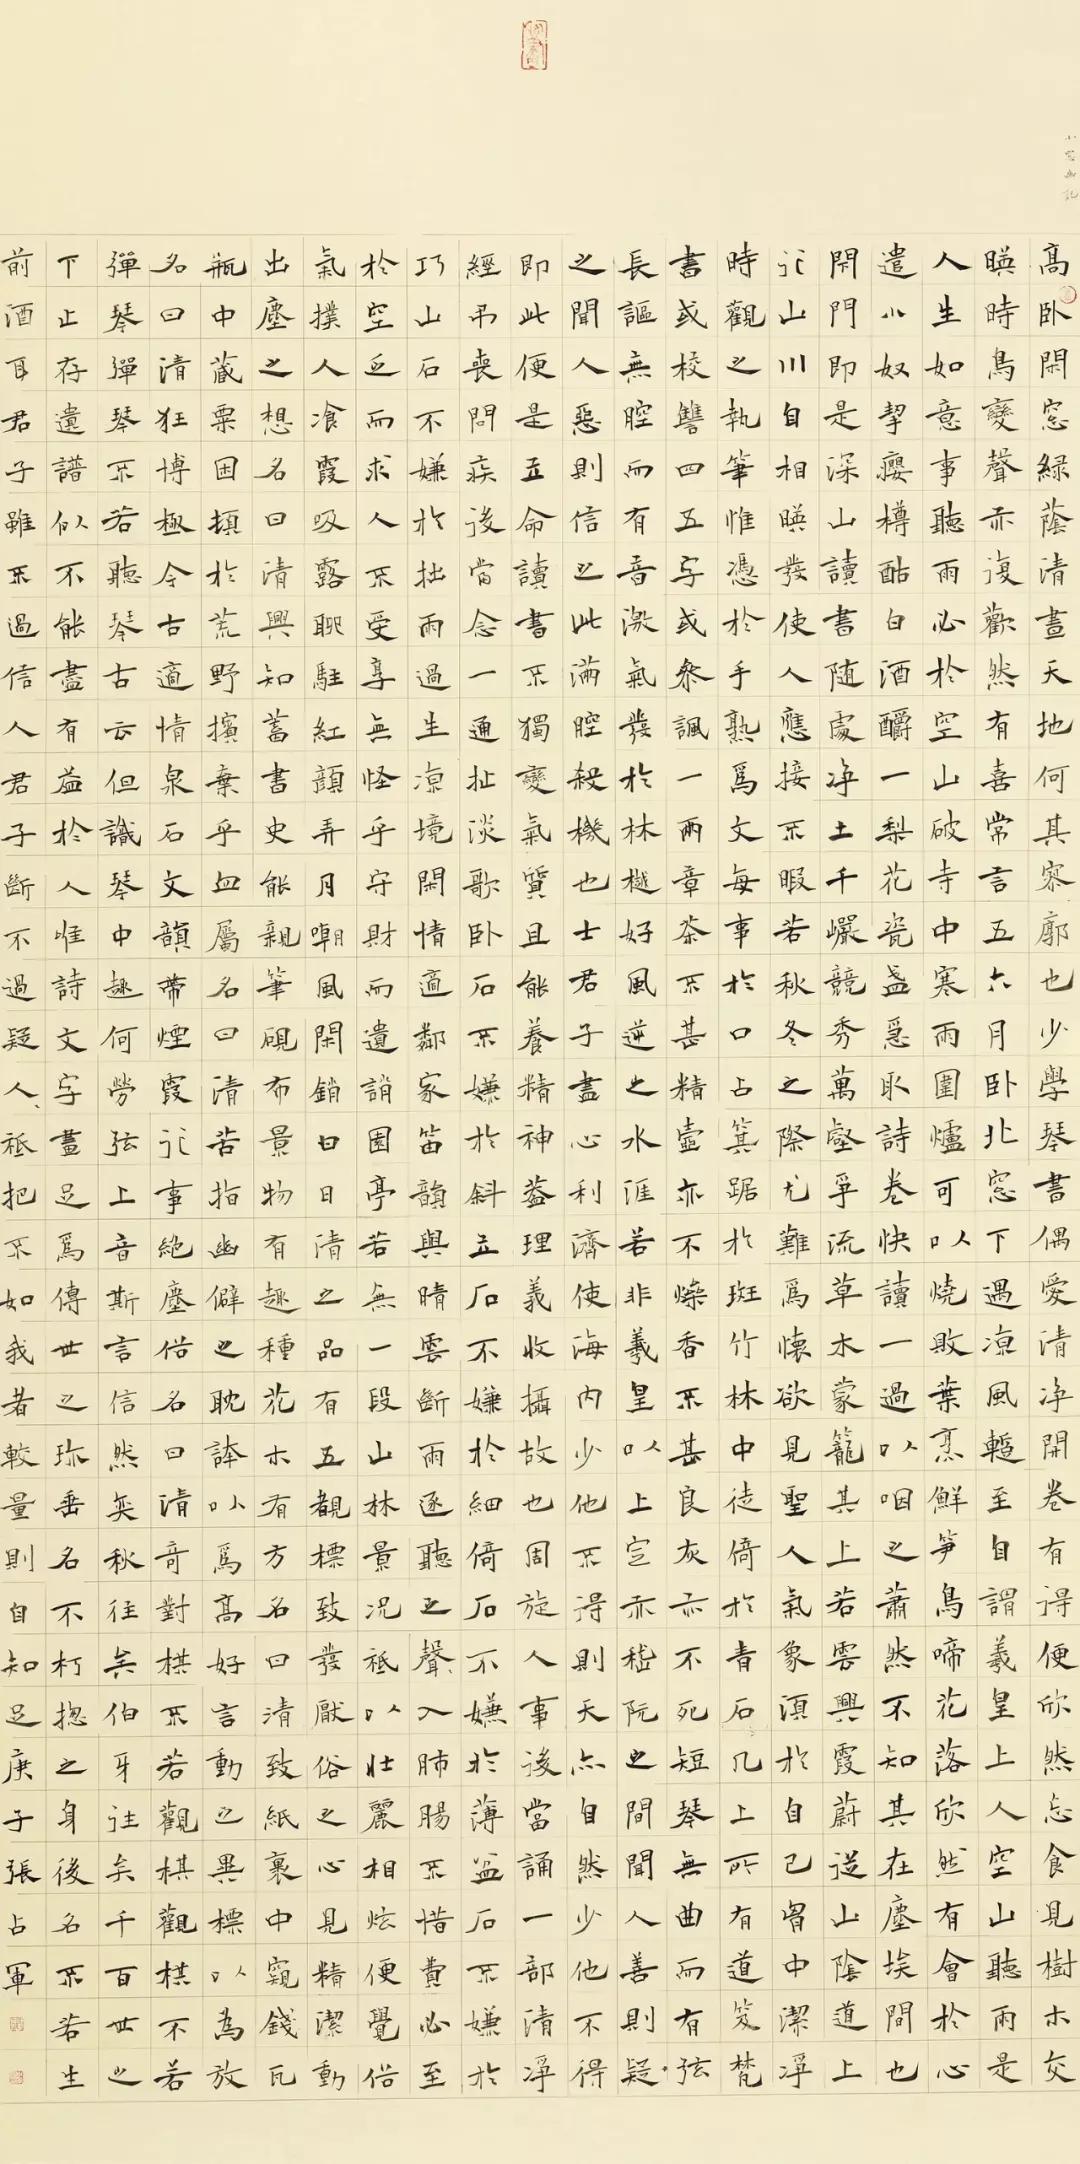 小窗幽記
高卧閑窓緑蔭清晝天地何其寥廓也少學琴書偶愛清净開卷有得便欣然忘食見樹木交
暎時鳥變聲亦復歡然有喜常言五六月卧北窓下遇凉風蹔至自謂羲皇上人空山聽雨是
人生如意事聽雨必於空山破寺中寒雨圍爐可以燒敗葉烹鮮笋鳥啼花落欣然有會於心
遣小奴挈癭樽酤白酒釂一梨花瓷盞急取詩卷快讀一過以咽之蕭然不知其在塵埃間也
閑門即是深山讀書随處净土千巖競秀萬壑爭流草木蒙籠其上若雲興霞蔚從山陰道上
行山川自相暎發使人應接不暇若秋冬之際尤難爲懷欲見聖人氣象須於自己胷中潔淨
時觀之執筆惟憑於手熟爲文每事於口占箕踞於斑竹林中徙倚於青石几上所有道笈梵
書或校讐四五字或參諷一兩章茶不甚精壺亦不燥香不甚良灰亦不死短琴無曲而有弦
長謳無腔而有音激氣發於林樾好風逆之水涯若非羲皇以上定亦嵇阮之間聞人善則疑
之聞人惡則信之此滿腔殺機也士君子盡心利濟使海内少他不得則天亦自然少他不得
即此便是立命讀書不獨變氣質且能養精神葢理義收攝故也周旋人事後當誦一部清淨
經弔喪問疾後當念一通扯淡歌卧石不嫌於斜立石不嫌於細倚石不嫌於薄盆石不嫌於
巧山石不嫌於拙雨過生凉境閑情適鄰家笛韻與晴雲斷雨逐聽之聲入肺腸不惜費必至
於空乏而求人不受享無怪乎守財而遺誚園亭若無一段山林景况祗以壯麗相炫便覺俗
氣撲人飡霞吸露聊駐紅顔弄月嘲風閑銷白日清之品有五覩標致發厭俗之心見精潔動
出塵之想名曰清興知蓄書史能親筆硯布景物有趣種花木有方名曰清致紙裹中窺錢瓦
瓶中藏粟困頓於荒野擯棄乎血屬名曰清苦指幽僻之耽誇以爲高好言動之異標以為放
名曰清狂博極今古適情泉石文韻帶煙霞行事絶塵俗名曰清奇對棋不若觀棋觀棋不若
彈琴彈琴不若聽琴古云但識琴中趣何勞弦上音斯言信然奕秋往矣伯牙往矣千百世之
下止存遺譜似不能盡有益於人唯詩文字畫足爲傳世之珍垂名不朽揔之身後名不若生
前酒耳君子雖不過信人君子斷不過疑人祗把不如我者較量則自知足庚子張占軍